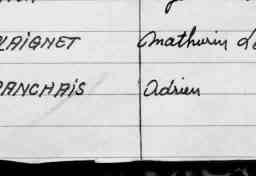 LAIGNET Mathurin
RANCHAIS Adrien